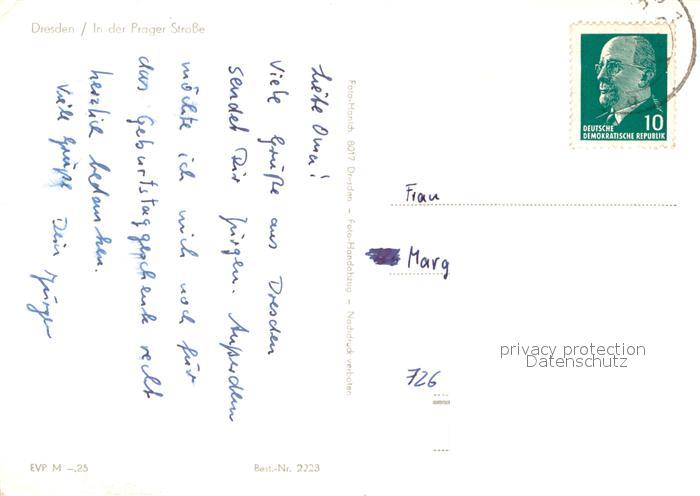 Dresden / In der Prager Straße
Liebe Oma!
Viele Grüße aus Dresden
sendet Dir Jürgen. Außerdem
möchte ich mich noch für
das Geburtstagsgeschenk recht
herzlich bedanken.
Viele Grüße Dein Jürgen
EVP M –.25
Best.-Nr. 2223
Foto-Manich, 8017 Dresden – Foto-Handabzug – Nachdruck verboten
10
DEUTSCHE
DEMOKRATISCHE REPUBLIK
Frau
Marg
726
privacy protection
Datenschutz